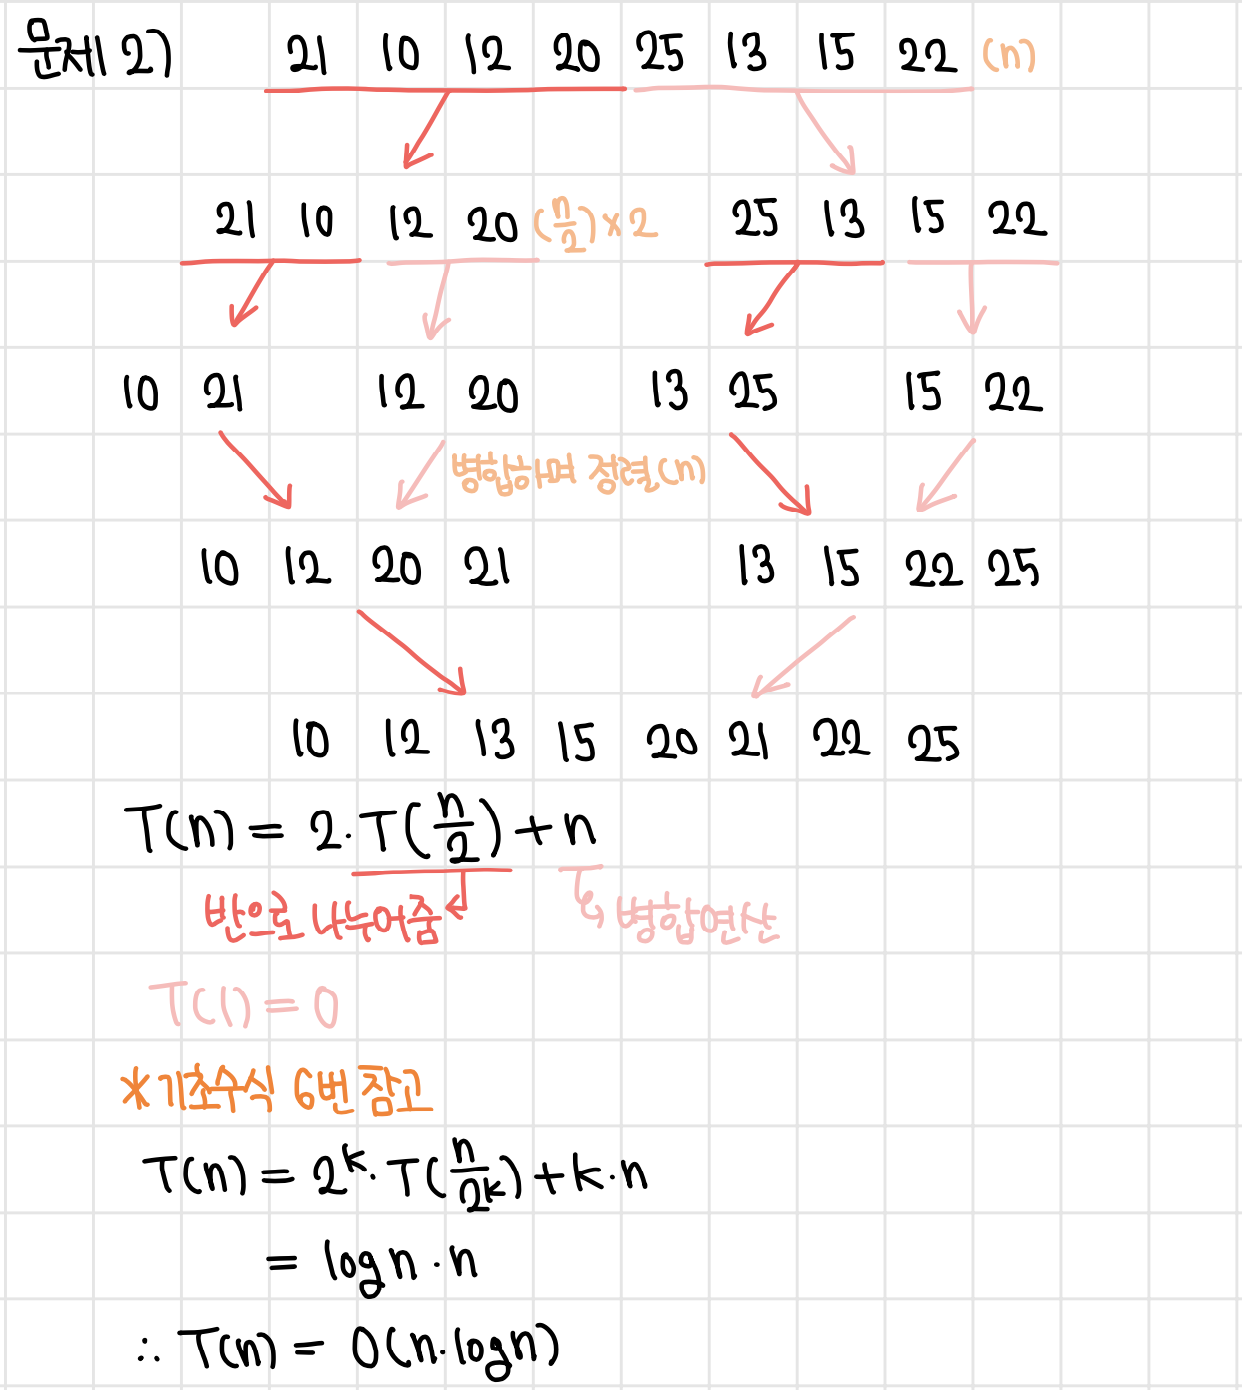 문제 2) 21 10 12 20 25 13 15 22 (n)
21 10 12 20 (n/2)×2 25 13 15 22
10 21 12 20 13 25 15 22
병합하며 정렬(n)
10 12 20 21 13 15 22 25
10 12 13 15 20 21 22 25
T(n) = 2·T(n/2)+n
반으로 나누어줌 병합연산
T(1) = 0
*기초수식 6번 참고
T(n) = 2^k·T(n/2^k)+k·n
= logn·n
∴ T(n) = O(n·logn)